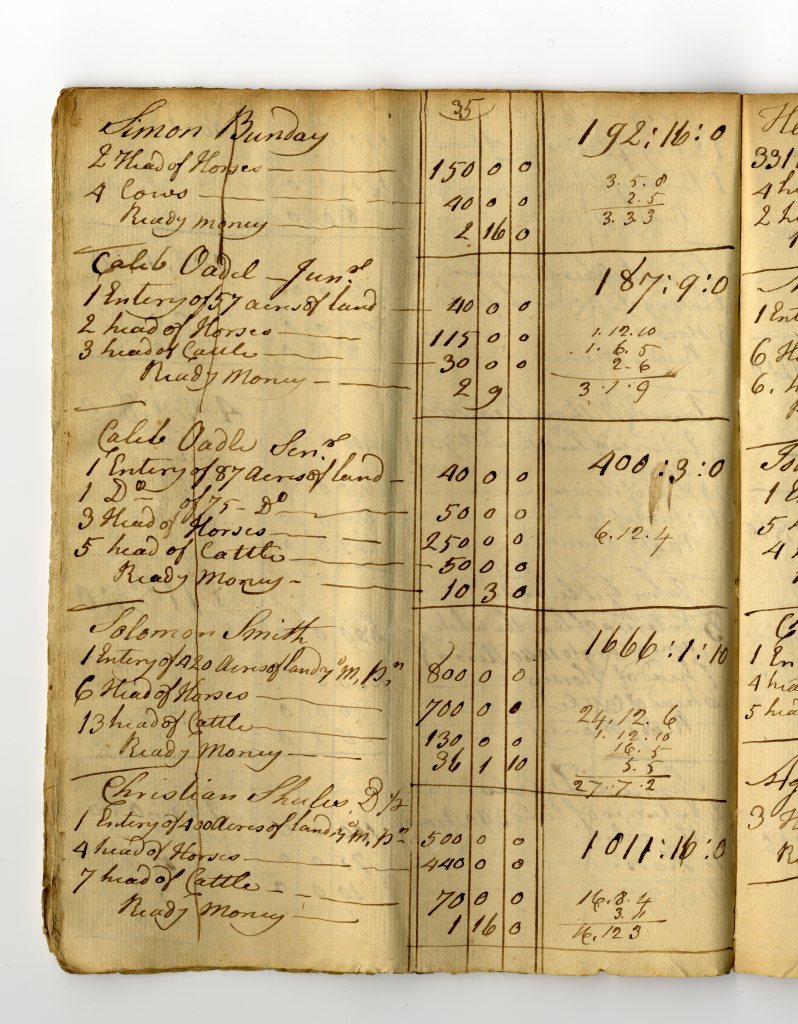 35
Simon Bunday 192:16:0
2 Head of Horses 150 0 0
3.5.8
4 Cows 40 0 0
2.5
Ready money 2 16 0
3.3.3
Caleb Oadel Junr 187:9:0
1 Entery of 57 acres of land 40 0 0
2 head of Horses 115 0 0
1.12.10
3 head of Cattle 30 0 0
1.6.5
2.6
Ready Money 2 9
3.1.9
Caleb Oadle Senr
1 Entery of 87 Acres of land 40 0 0 400:3:0
1 Do of 75 Do 50 0 0
3 Head of Horses 250 0 0
6.12.4
5 head of Cattle 50 0 0
Ready Money 10 3 0
Solomon Smith 1666:1:10
1 Entery of 420 Acres of land 800 0 0
6 Head of Horses 700 0 0
24.12.6
13 head of Cattle 130 0 0
1.12.10
16.5
Ready Money 36 1 10
5.5
27.7.2
Christian
1 Entery of 400 Acres of land 500 0 0 1011:16:0
4 head of Horses 440 0 0
7 head of Cattle 70 0 0
16.8.4
3.11
Ready Money 1 16 0
16.12 3
He
331
4 h
2 h
1 Ent
6 H
6. h
1 E
5 h
4 h
1 En
4 hea
5 hea
Ag
3 H
Re